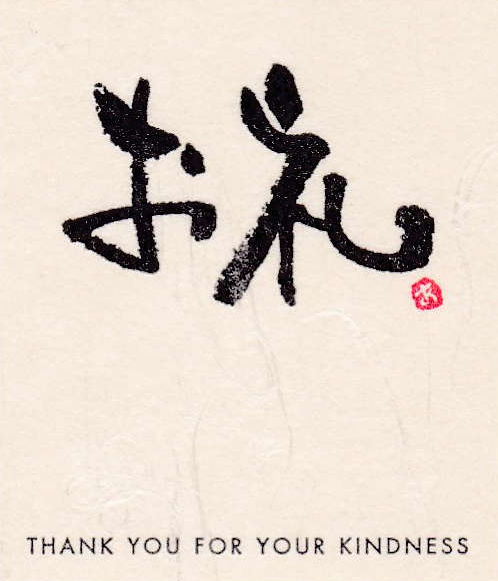 お礼
THANK YOU FOR YOUR KINDNESS